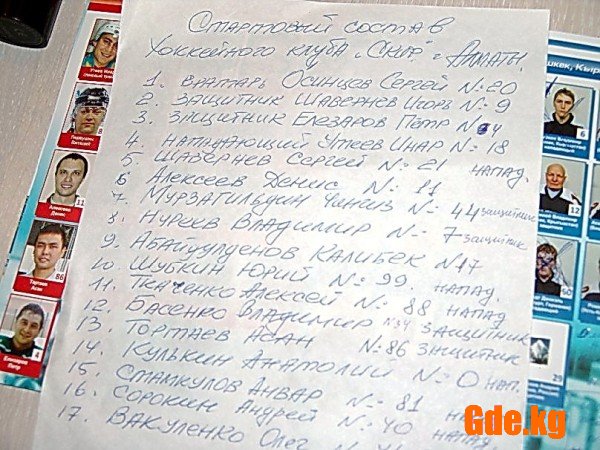 Стартовый состав
Хоккейного клуба "Скир" г Алматы
1. Вратарь Осинцев Сергей №20
2. Защитник Шавернев Игорь № 9
3. Защитник Елезаров Пётр №4
4. Нападающий Утеев Инар № 18
5. Шавернев Сергей № 21 напад.
6 Алексеев Денис № 11
7. Мурзагильдин Чингиз № 44 защитник
8. Нуреев Владимир № 7 защитник
9. Абайдулденов Калибек №17
10. Шубкин Юрий № 99. напад.
11. Ткаченко Алексей № 88 напад
12. Басенко Владимир №34 защитник
13. Тортаев Асан №86 защитник
14. Кулькин Анатолий № 0 нап.
15. Стамкулов Анвар № 81 на
16. Сорокин Андрей № 40 напад.
17. Вакуленко Олег №
Алексеев
Денис
12
86
Асан
Елизаров
Петр
4
шкек, Кыр
6
11
29
Gde.kg